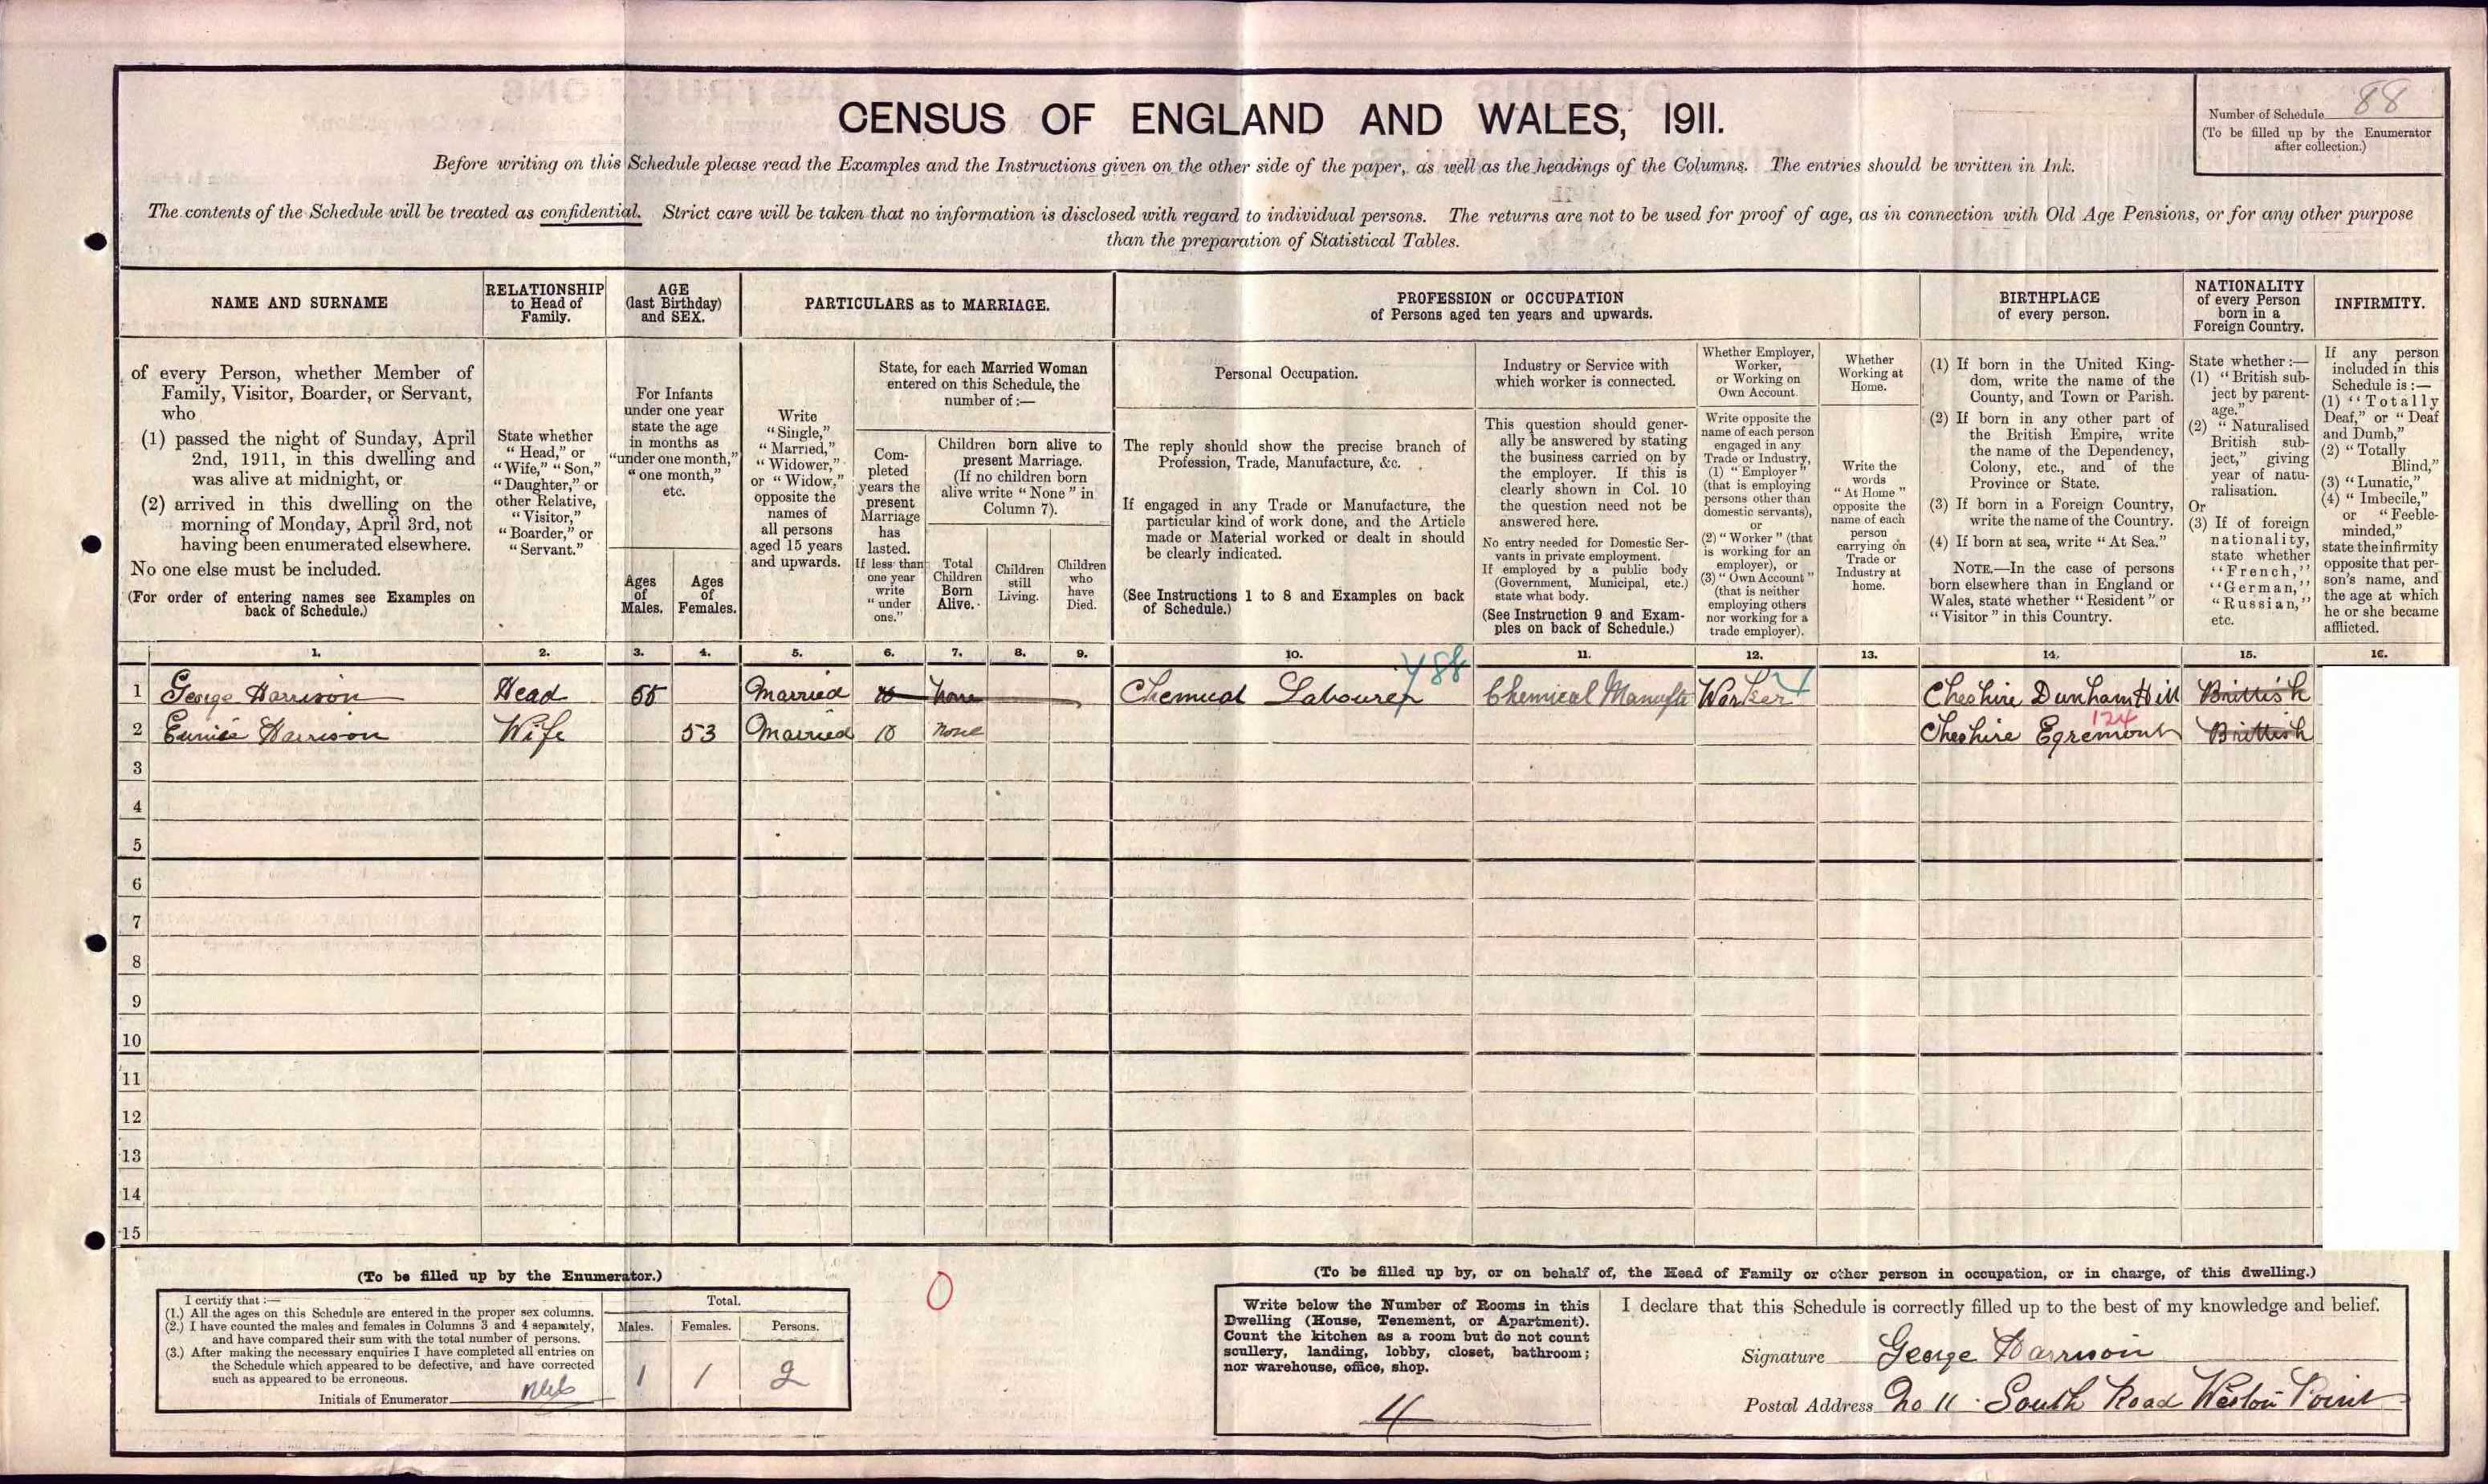 CENSUS OF ENGLAND AND WALES, 1911.
Number of Schedule 88
(To be filled up by the Enumerator
after collection.)
Before writing on this Schedule please read the Examples and the Instructions given on the other side of the paper, as well as the headings of the Columns. The entries should be written in Ink.
The contents of the Schedule will be treated as confidential. Strict care will be taken that no information is disclosed with regard to individual persons. The returns are not to be used for proof of age, as in connection with Old Age Pensions, or for any other purpose
than the preparation of Statistical Tables.
NAME AND SURNAME
of every Person, whether Member of
Family, Visitor, Boarder, or Servant,
who
(1) passed the night of Sunday, April
2nd, 1911, in this dwelling and
was alive at midnight, or
(2) arrived in this dwelling on the
morning of Monday, April 3rd, not
having been enumerated elsewhere.
No one else must be included.
(For order of entering names see Examples on
back of Schedule.)
RELATIONSHIP
to Head of
Family.
State whether
"Head," or
"Wife," "Son,"
"Daughter," or
other Relative,
"Visitor,"
"Boarder," or
"Servant."
AGE
(last Birthday)
and SEX.
For Infants
under one year
state the age
in months as
"under one month,"
"one month,"
etc.
Ages
of
Males.
Ages
of
Females.
PARTICULARS as to MARRIAGE.
Write
"Single,"
"Married,"
"Widower,"
or "Widow,"
opposite the
names of
all persons
aged 15 years
and upwards.
State, for each Married Woman
entered on this Schedule, the
number of :—
Com-
pleted
years the
present
Marriage
has
lasted.
If less than
one year
write
"under
one."
Children born alive to
present Marriage.
(If no children born
alive write "None" in
Column 7).
Total
Children
Born
Alive.
Children
still
Living.
Children
who
have
Died.
PROFESSION or OCCUPATION
of Persons aged ten years and upwards.
Personal Occupation.
The reply should show the precise branch of
Profession, Trade, Manufacture, &c.
If engaged in any Trade or Manufacture, the
particular kind of work done, and the Article
made or Material worked or dealt in should
be clearly indicated.
(See Instructions 1 to 8 and Examples on back
of Schedule.)
Industry or Service with
which worker is connected.
This question should gener-
ally be answered by stating
the business carried on by
the employer. If this is
clearly shown in Col. 10
the question need not be
answered here.
No entry needed for Domestic Ser-
vants in private employment.
If employed by a public body
(Government, Municipal, etc.)
state what body.
(See Instruction 9 and Exam-
ples on back of Schedule.)
Whether Employer,
Worker,
or Working on
Own Account.
Write opposite the
name of each person
engaged in any
Trade or Industry,
(1) "Employer"
(that is employing
persons other than
domestic servants),
or
(2) "Worker" (that
is working for an
employer), or
(3) "Own Account"
(that is neither
employing others
nor working for a
trade employer).
Whether
Working at
Home.
Write the
words
"At Home"
opposite the
name of each
person
carrying on
Trade or
Industry at
home.
BIRTHPLACE
of every person.
(1) If born in the United King-
dom, write the name of the
County, and Town or Parish.
(2) If born in any other part of
the British Empire, write
the name of the Dependency,
Colony, etc., and of the
Province or State.
(3) If born in a Foreign Country,
write the name of the Country.
(4) If born at sea, write "At Sea."
NOTE.—In the case of persons
born elsewhere than in England or
Wales, state whether "Resident" or
"Visitor" in this Country.
NATIONALITY
of every Person
born in a
Foreign Country.
State whether :—
(1) "British sub-
ject by parent-
age."
(2) "Naturalised
British sub-
ject," giving
year of natu-
ralisation.
Or
(3) If of foreign
nationality,
state whether
"French,"
"German,"
"Russian,"
etc.
INFIRMITY.
If any person
included in this
Schedule is :—
(1) "Totally
Deaf," or "Deaf
and Dumb,"
(2) "Totally
Blind,"
(3) "Lunatic,"
(4) "Imbecile,"
or "Feeble-
minded,"
state the infirmity
opposite that per-
son's name, and
the age at which
he or she became
afflicted.
1. 2. 3. 4. 5. 6. 7. 8. 9. 10. 11. 12. 13. 14. 15. 16.
488
1 George Harrison Head 55 Married 10 None Chemical Labourer Chemical Manufte Worker Cheshire Dunham Hill Brittish
124
2 Eunice Harrison Wife 53 Married 10 None Cheshire Egremont Brittish
3
4
5
6
7
8
9
10
11
12
13
14
15
(To be filled up by the Enumerator.)
I certify that :—
(1.) All the ages on this Schedule are entered in the proper sex columns.
(2.) I have counted the males and females in Columns 3 and 4 separately,
and have compared their sum with the total number of persons.
(3.) After making the necessary enquiries I have completed all entries on
the Schedule which appeared to be defective, and have corrected
such as appeared to be erroneous.
Initials of Enumerator
Total.
Males. Females. Persons.
1 1 2
0
(To be filled up by, or on behalf of, the Head of Family or other person in occupation, or in charge, of this dwelling.)
Write below the Number of Rooms in this
Dwelling (House, Tenement, or Apartment).
Count the kitchen as a room but do not count
scullery, landing, lobby, closet, bathroom;
nor warehouse, office, shop.
4
I declare that this Schedule is correctly filled up to the best of my knowledge and belief.
Signature George Harrison
Postal Address No 11 South Road Weston Point